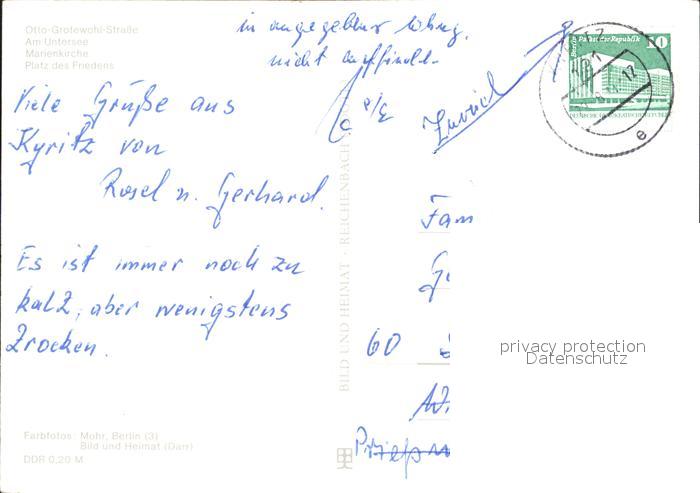 Otto-Grotewohl-Straße
Am Untersee
Marienkirche
Platz des Friedens
in angegebner
nicht auffindb.
Zurück
Berlin Palast der Republik
10
DEUTSCHE DEMOKRATISCHE REPUBLIK
Viele Grüße aus
Kyritz von
Rosel u. Gerhard.
Es ist immer noch zu
kalt, aber wenigstens
trocken.
Fam
60
BILD UND HEIMAT · REICHENBACH
privacy protection
Datenschutz
Farbfotos: Mohr, Berlin (3)
Bild und Heimat (Darr)
DDR 0,20 M